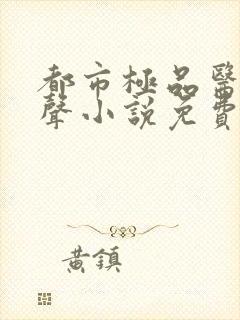 都市極品醫
聲小說免費
黃鎮